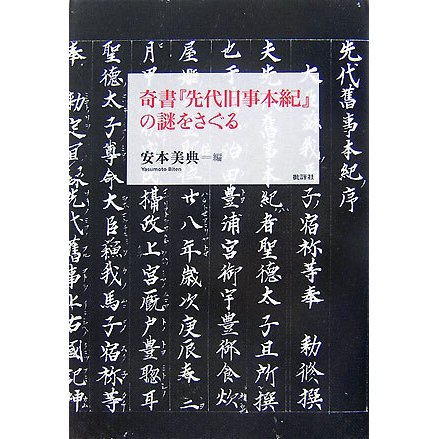 奇書『先代旧事本紀』
の謎をさぐる
安本美典＝編
Yasumoto Biten
批評社
先代舊事本紀序
大
子宿祢等奉　勅修撰
夫先
本紀者聖德太子且所撰
也于
治田豊浦宮御宇豊御食炊
屋姬
廿八年歳次庚辰春三
月甲
攝政上宮厩戸豊聡耳
聖德太子尊命大臣蘇我馬子宿祢等
奉勅定
先代舊事上古國記神